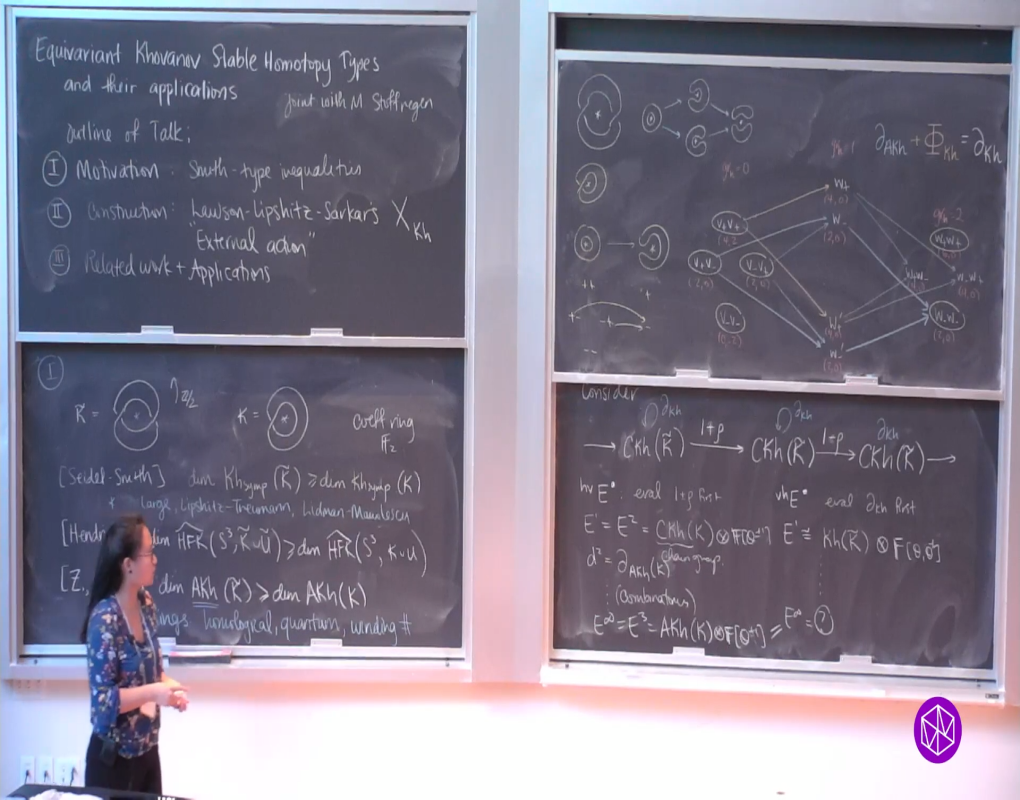 Equivariant Khovanov Stable Homotopy Types
and their applications
joint with M Stoffregen
outline of Talk:
I Motivation: Smith-type inequalities
II Construction: Lawson-Lipshitz-Sarkar's X_Kh
"External action"
III Related work + Applications
I
K̃ =
ℤ/2
K =
coeff ring
F_2
[Seidel-Smith] dim Kh_symp (K̃) ≥ dim Kh_symp (K)
+ Large, Lipshitz-Treumann, Lidman-Manolescu
dim HFK^(S³, K̃∪Ũ) ≥ dim HFK^(S³, K∪U)
[Z., dim AKh (K̃) ≥ dim AKh(K)
homological, quantum, winding #
∂_AKh + Φ_Kh = ∂_Kh
W_+
W_-
V_+V_+
V_-V_-
W_-W_+
W_-W_-
consider
∂_Kh ∂_Kh ∂_Kh
→ CKh(K̃) —1+ρ→ CKh(K̃) —1+ρ→ CKh(K̃) →
hv E•: eval 1+ρ first
vh E• eval ∂_Kh first
E¹ = E² = CKh(K) ⊗ F[θ^±1]
chain group
E¹ ≅ Kh(K̃) ⊗ F[θ,θ^-1]
d² = ∂_AKh(K)
(combinatorics)
E^∞ = E³ = AKh(K) ⊗ F[θ^±1]
E^∞ = ?